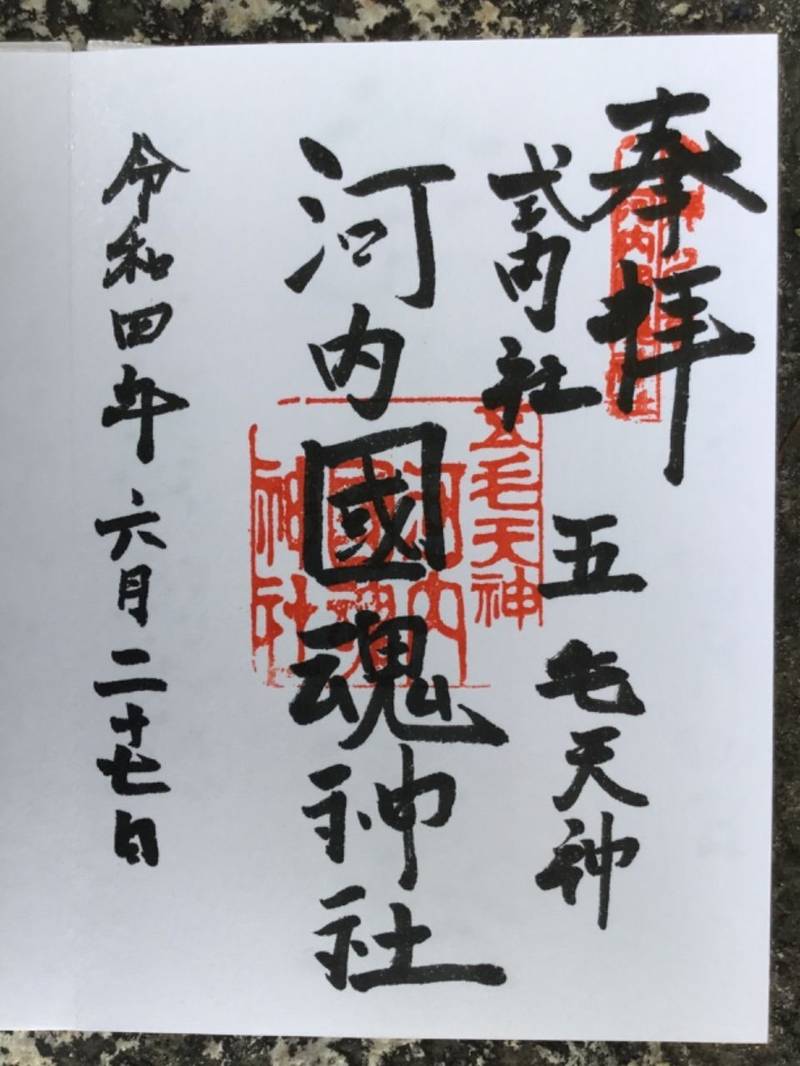 奉拝
式内社
五毛天神
河内國魂神社
令和四年六月二十七日
五毛天神
河内
國魂
神社